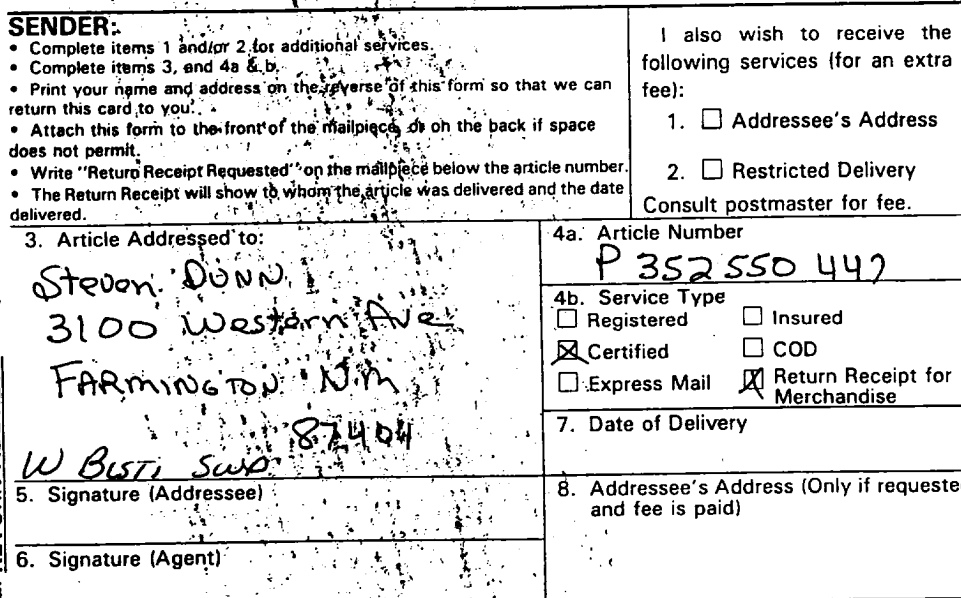 SENDER:
• Complete items 1 and/or 2 for additional services.
• Complete items 3, and 4a & b.
• Print your name and address on the reverse of this form so that we can
return this card to you.
• Attach this form to the front of the mailpiece, or on the back if space
does not permit.
• Write "Return Receipt Requested" on the mailpiece below the article number.
• The Return Receipt will show to whom the article was delivered and the date
delivered.
I also wish to receive the
following services (for an extra
fee):
1. ☐ Addressee's Address
2. ☐ Restricted Delivery
Consult postmaster for fee.
3. Article Addressed to:
Steven DUNN
3100 Western Ave
FARMINGTON N.M
87404
W BISTI SWD
4a. Article Number
P 352 550 447
4b. Service Type
☐ Registered ☐ Insured
☒ Certified ☐ COD
☐ Express Mail ☒ Return Receipt for
Merchandise
7. Date of Delivery
5. Signature (Addressee)
8. Addressee's Address (Only if requeste
and fee is paid)
6. Signature (Agent)